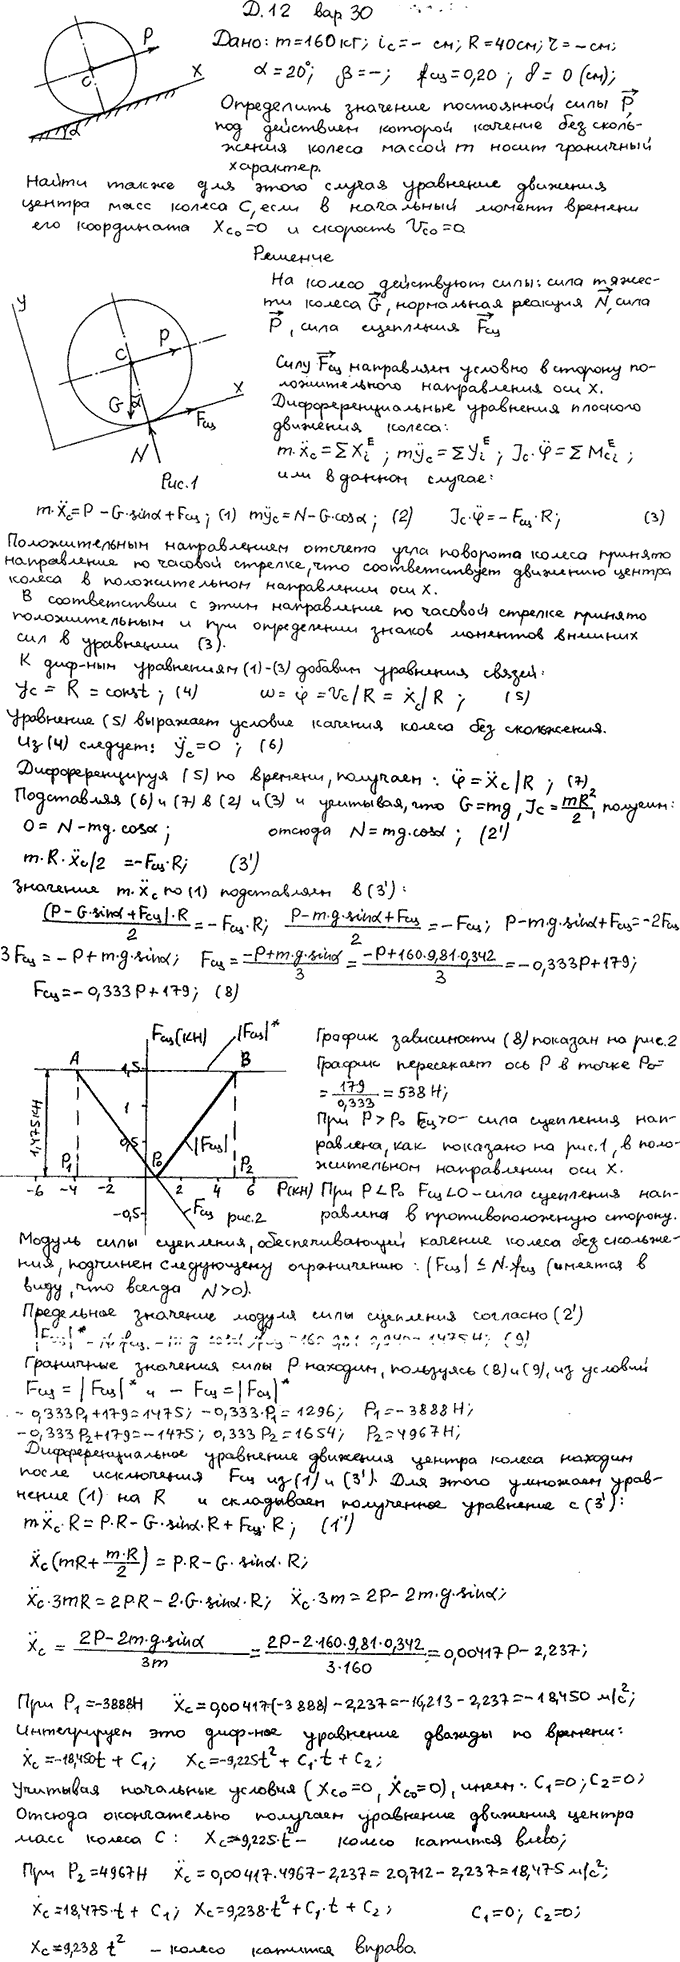 Д.12 вар 30
Дано: m=160кг; iс=– см; R=40см; r=–см;
α=20°; β=–; fсц=0,20; δ=0(см);
Определить значение постоянной силы P,
под действием которой качение без сколь-
жения колеса массой m носит граничный
характер.
Найти также для этого случая уравнение движения
центра масс колеса C, если в начальный момент времени
его координата Xco=0 и скорость Vco=0
P
C
X
α
Решение
На колесо действуют силы: сила тяжес-
ти колеса G, нормальная реакция N, сила
P, сила сцепления Fсц
y
P
C
G
α
X
Fсц
N
Рис.1
Силу Fсц направляем условно в сторону по-
ложительного направления оси X.
Дифференциальные уравнения плоского
движения колеса:
m·ẍc=ΣXiᴱ; mÿc=ΣYiᴱ; Jc·φ̈=ΣMciᴱ;
или в данном случае:
m·ẍc=P–G·sinα+Fсц; (1) mÿc=N–G·cosα; (2) Jc·φ̈=–Fсц·R; (3)
Положительным направлением отсчета угла поворота колеса принято
направление по часовой стрелке, что соответствует движению центра
колеса в положительном направлении оси X.
В соответствии с этим направление по часовой стрелке принято
положительным и при определении знаков моментов внешних
сил в уравнении (3).
К диф-ным уравнениям (1)-(3) добавим уравнения связей:
yc=R=const; (4) ω=φ̇=Vc/R=ẋc/R; (5)
Уравнение (5) выражает условие качения колеса без скольжения.
Из (4) следует: ÿc=0; (6)
Дифференцируя (5) по времени, получаем: φ̈=ẍc/R; (7)
Подставляя (6) и (7) в (2) и (3) и учитывая, что G=mg, Jc=mR²/2, получим:
0=N–mg·cosα; отсюда N=mg·cosα; (2')
m·R·ẍc/2=–Fсц·R; (3')
Значение m·ẍc по (1) подставляем в (3'):
(P–G·sinα+Fсц)·R/2=–Fсц·R; P–m·g·sinα+Fсц/2=–Fсц; P–m·g·sinα+Fсц=–2Fсц
3Fсц=–P+m·g·sinα; Fсц=–P+m·g·sinα/3=–P+160·9,81·0,342/3=–0,333P+179;
Fсц=–0,333P+179; (8)
Fсц(кН)
|Fсц|*
A
B
1,5
1
0,5
1,475кН
|Fсц|
P1
P0
P2
-6 -4 -2 2 4 6 P(кН)
-0,5
Fсц
рис.2
График зависимости (8) показан на рис.2
График пересекает ось P в точке P0=
=179/0,333=538Н;
При P>P0 Fсц>0– сила сцепления нап-
равлена, как показано на рис.1, в поло-
жительном направлении оси X.
При P<P0 Fсц<0–сила сцепления нап-
равлена в противоположную сторону.
Модуль силы сцепления, обеспечивающий качение колеса без скольже-
ния, подчинен следующему ограничению: |Fсц|≤N·fсц (имеется в
виду, что всегда N>0).
Предельное значение модуля силы сцепления согласно (2')
|Fсц|* 1475Н; (9)
Граничные значения силы P находим, пользуясь (8) и (9), из условий
Fсц=|Fсц|* и –Fсц=|Fсц|*
–0,333P1+179=1475; –0,333·P1=1296; P1=–3888Н;
–0,333P2+179=–1475; 0,333P2=1654; P2=4967Н;
Дифференциальное уравнение движения центра колеса находим
после исключения Fсц из (1) и (3'). Для этого умножаем урав-
нение (1) на R и складываем полученное уравнение с (3'):
m·ẍc·R=P·R–G·sinα·R+Fсц·R; (1'')
ẍc(mR+m·R/2)=P·R–G·sinα·R;
ẍc·3mR=2P·R–2·G·sinα·R; ẍc·3m=2P–2m·g·sinα;
ẍc=2P–2m·g·sinα/3m=2P–2·160·9,81·0,342/3·160=0,00417P–2,237;
При P1=–3888Н ẍc=0,00417(–3888)–2,237=–16,213–2,237=–18,450 м/с²;
Интегрируем это диф-ное уравнение дважды по времени:
ẋc=–18,450t+C1; xc=–9,225t²+C1·t+C2;
Учитывая начальные условия (Xco=0, ẋco=0), имеем: C1=0; C2=0;
Отсюда окончательно получаем уравнение движения центра
масс колеса C: Xc=–9,225·t²– колесо катится влево;
При P2=4967Н ẍc=0,00417·4967–2,237=20,712–2,237=18,475 м/с²;
ẋc=18,475·t+C1; Xc=9,238·t²+C1·t+C2; C1=0; C2=0;
Xc=9,238 t² – колесо катится вправо.